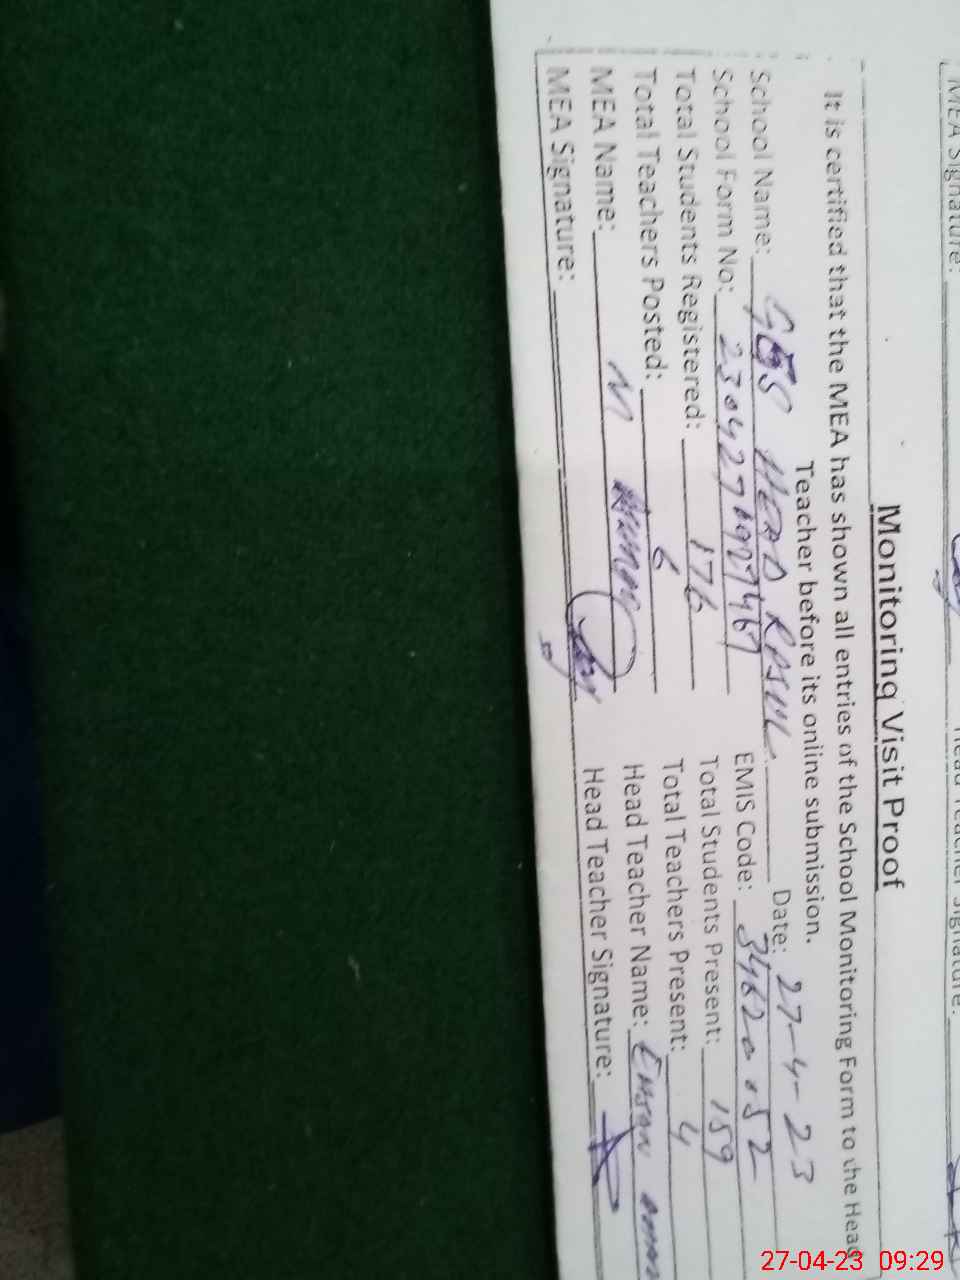 MEA Signature:
Head Teacher Signature:
Monitoring Visit Proof
It is certified that the MEA has shown all entries of the School Monitoring Form to the Head
Teacher before its online submission.
School Name: Head Rasul Date: 27-4-23
School Form No: EMIS Code: 34620152
Total Students Registered: 176 Total Students Present: 159
Total Teachers Posted: 6 Total Teachers Present: 4
MEA Name: M Head Teacher Name:
MEA Signature: Head Teacher Signature:
27-04-23 09:29